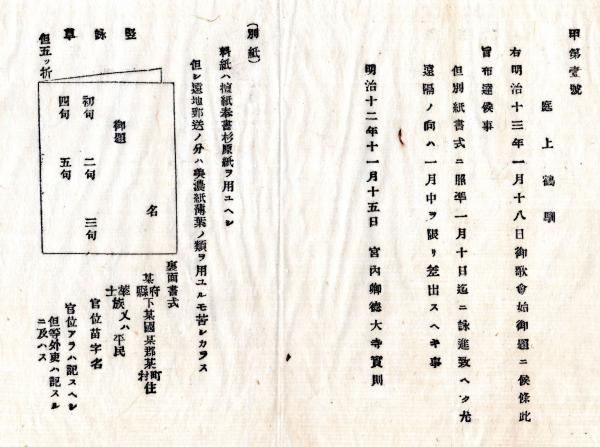 甲第壹號
庭上鶴馴
右明治十三年一月十八日御歌會始御題ニ候條此
旨布達候事
但別紙書式ニ照準一月十日迄ニ詠進致ヘク尤
遠隔ノ向ハ一月中ヲ限リ差出スヘキ事
明治十二年十一月十五日 宮內卿德大寺實則
(別紙)
料紙ハ檀紙奉書杉原紙ヲ用ユヘシ
但シ遠地郵送ノ分ハ美濃紙薄葉ノ類ヲ用ユルモ苦シカラス
竪詠草
但五ッ折
御題
名
初句 二句 三句
四句 五句
裏面書式
某府縣下某國某郡某町村住
華士族又ハ平民
官位苗字名
官位アラハ記スヘシ
但等外吏ハ記スル
ニ及ハス